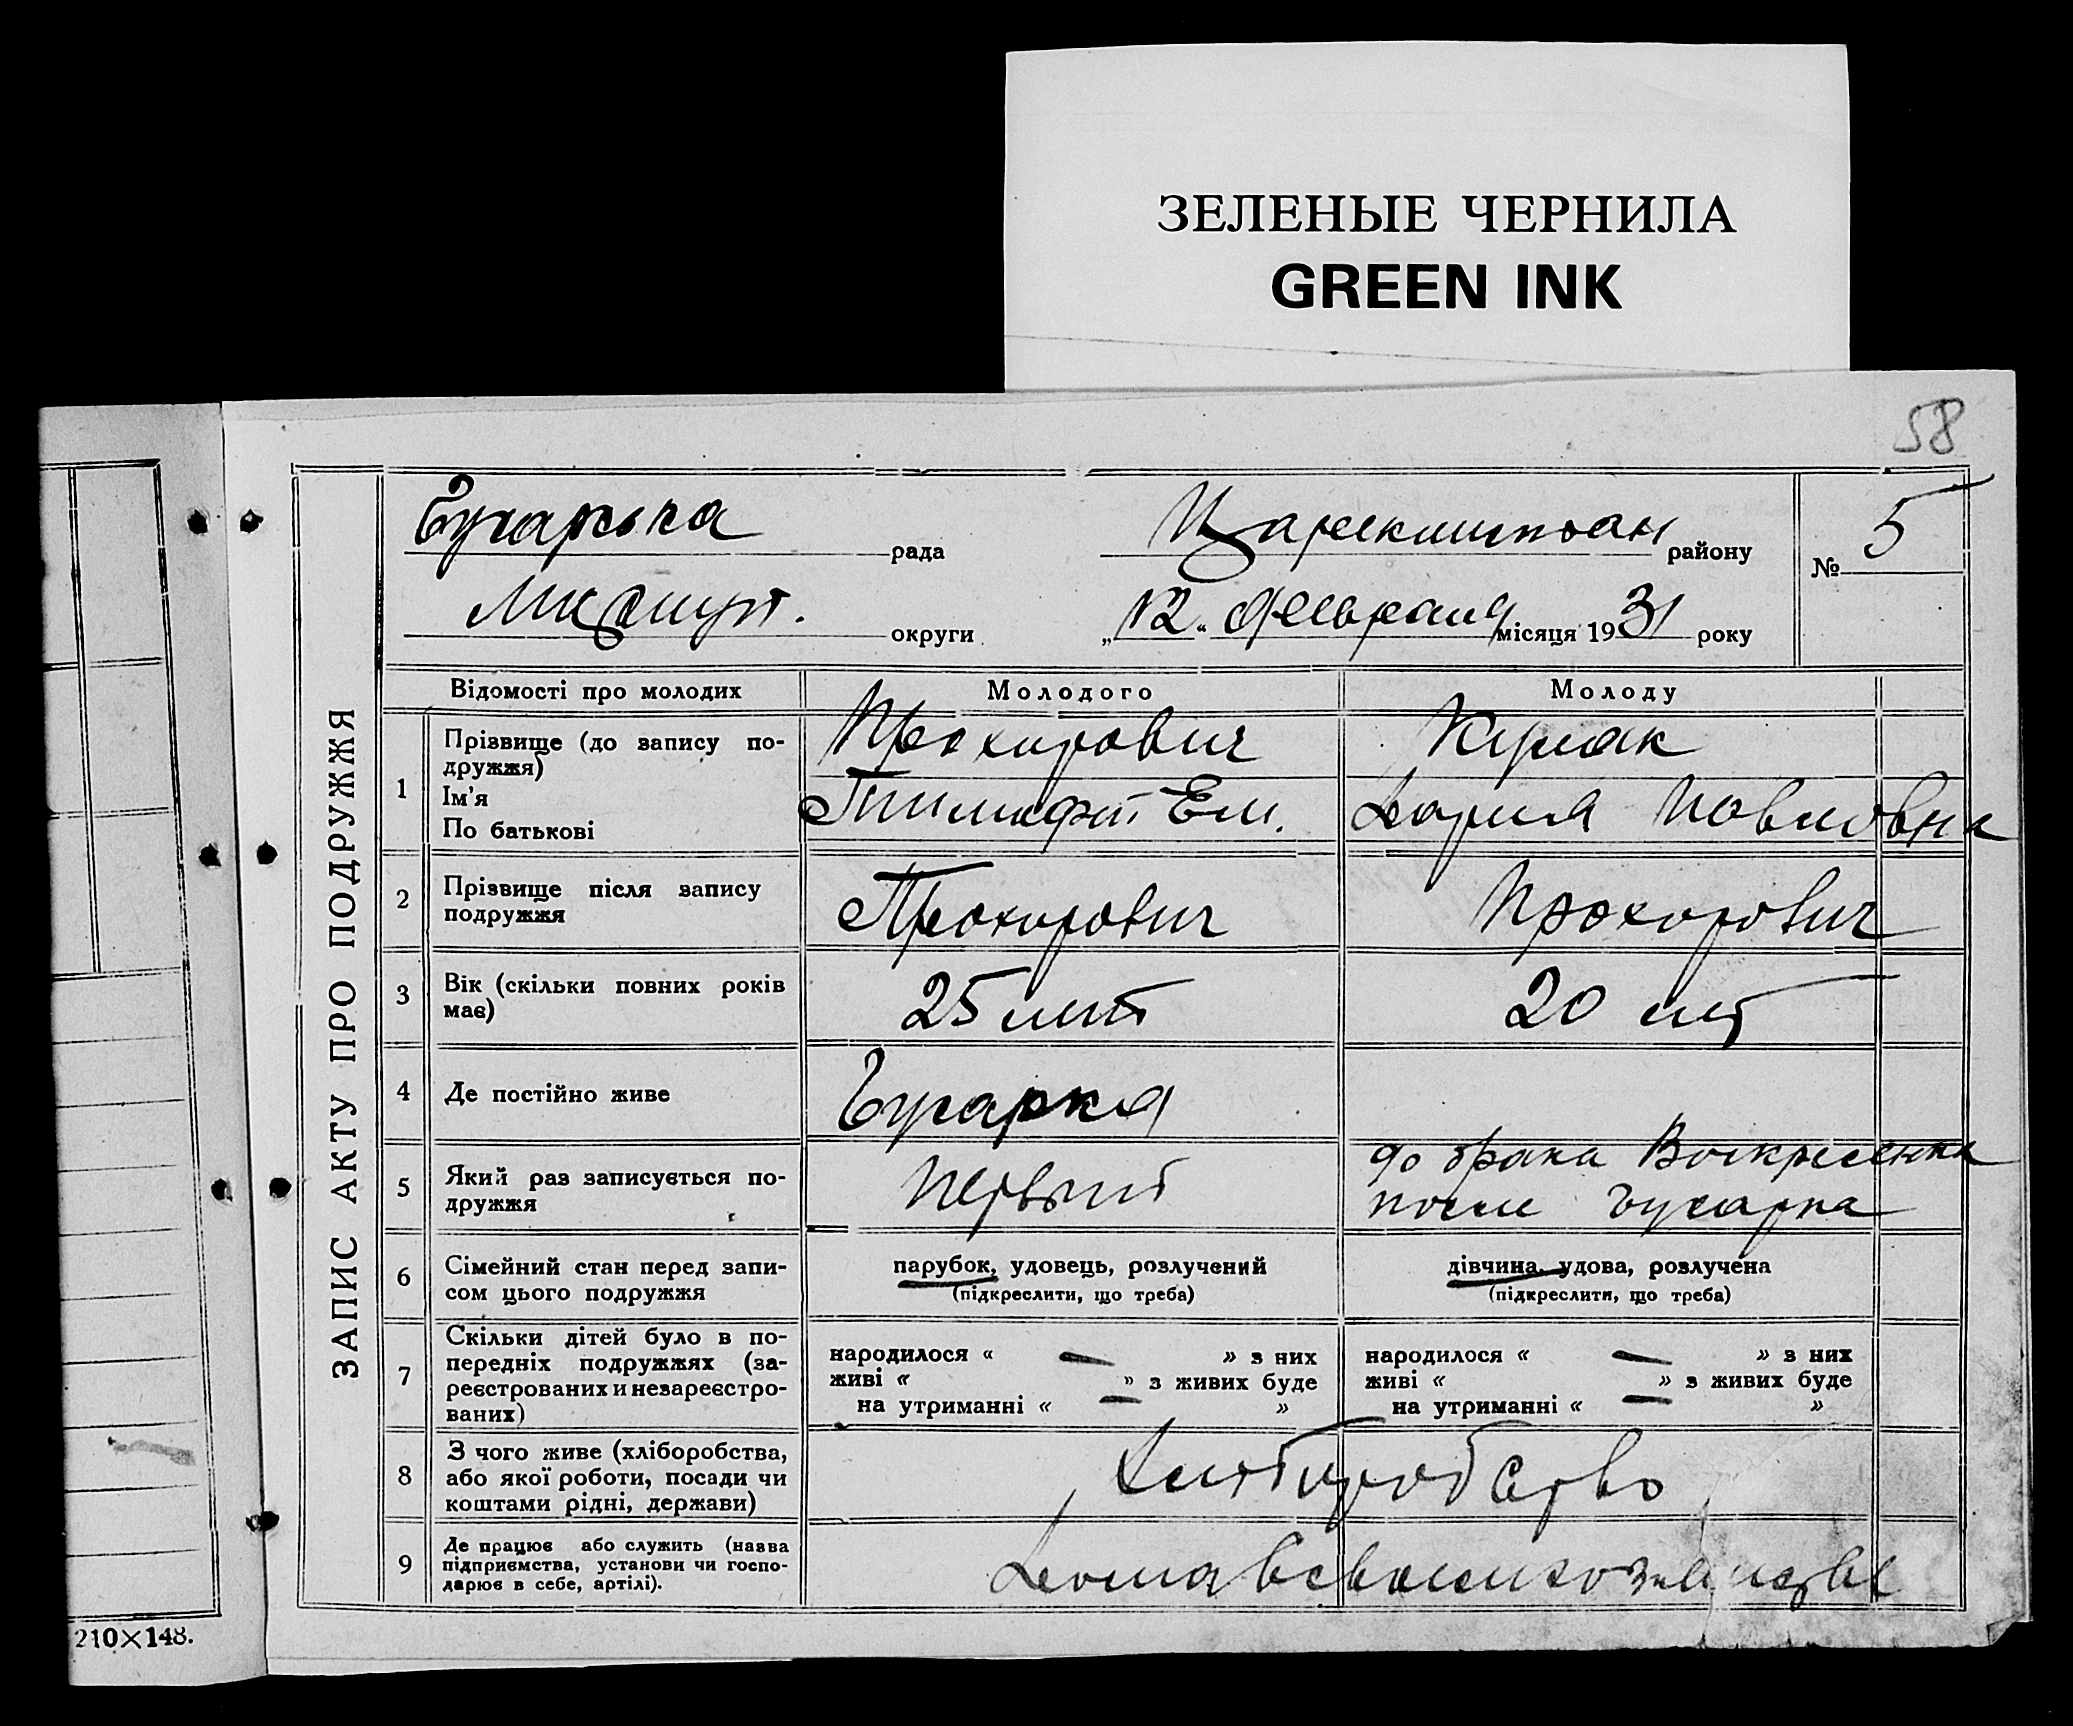 ЗЕЛЕНЫЕ ЧЕРНИЛА
GREEN INK
58
рада
району
№ 5
округи
„12“ Февраля місяця 1931 року
ЗАПИС АКТУ ПРО ПОДРУЖЖЯ
Відомості про молодих
Молодого
Молоду
1
Прізвище (до запису по-
дружжя)
Ім'я
По батькові
Прохорович
Тимофей Ем.
Дария Павловна
2
Прізвище після запису
подружжя
Прохорович
Прохорович
3
Вік (скільки повних років
має)
25 лет
20 лет
4
Де постійно живе
Бугарка
5
Який раз записується по-
дружжя
Первый
до брака Воскресенка
после Бугарка
6
Сімейний стан перед запи-
сом цього подружжя
парубок, удовець, розлучений
(підкреслити, що треба)
дівчина, удова, розлучена
(підкреслити, що треба)
7
Скільки дітей було в по-
передніх подружжях (за-
реєстрованих и незареєстро-
ваних)
народилося « — » з них
живі « » з живих буде
на утриманні « — »
народилося « — » з них
живі « » з живих буде
на утриманні « — »
8
З чого живе (хліборобства,
або якої роботи, посади чи
коштами рідні, держави)
Хлеборобство
9
Де працює або служить (назва
підприємства, установи чи госпо-
дарює в себе, артілі).
Дома в своем хозяйстве
210×148.